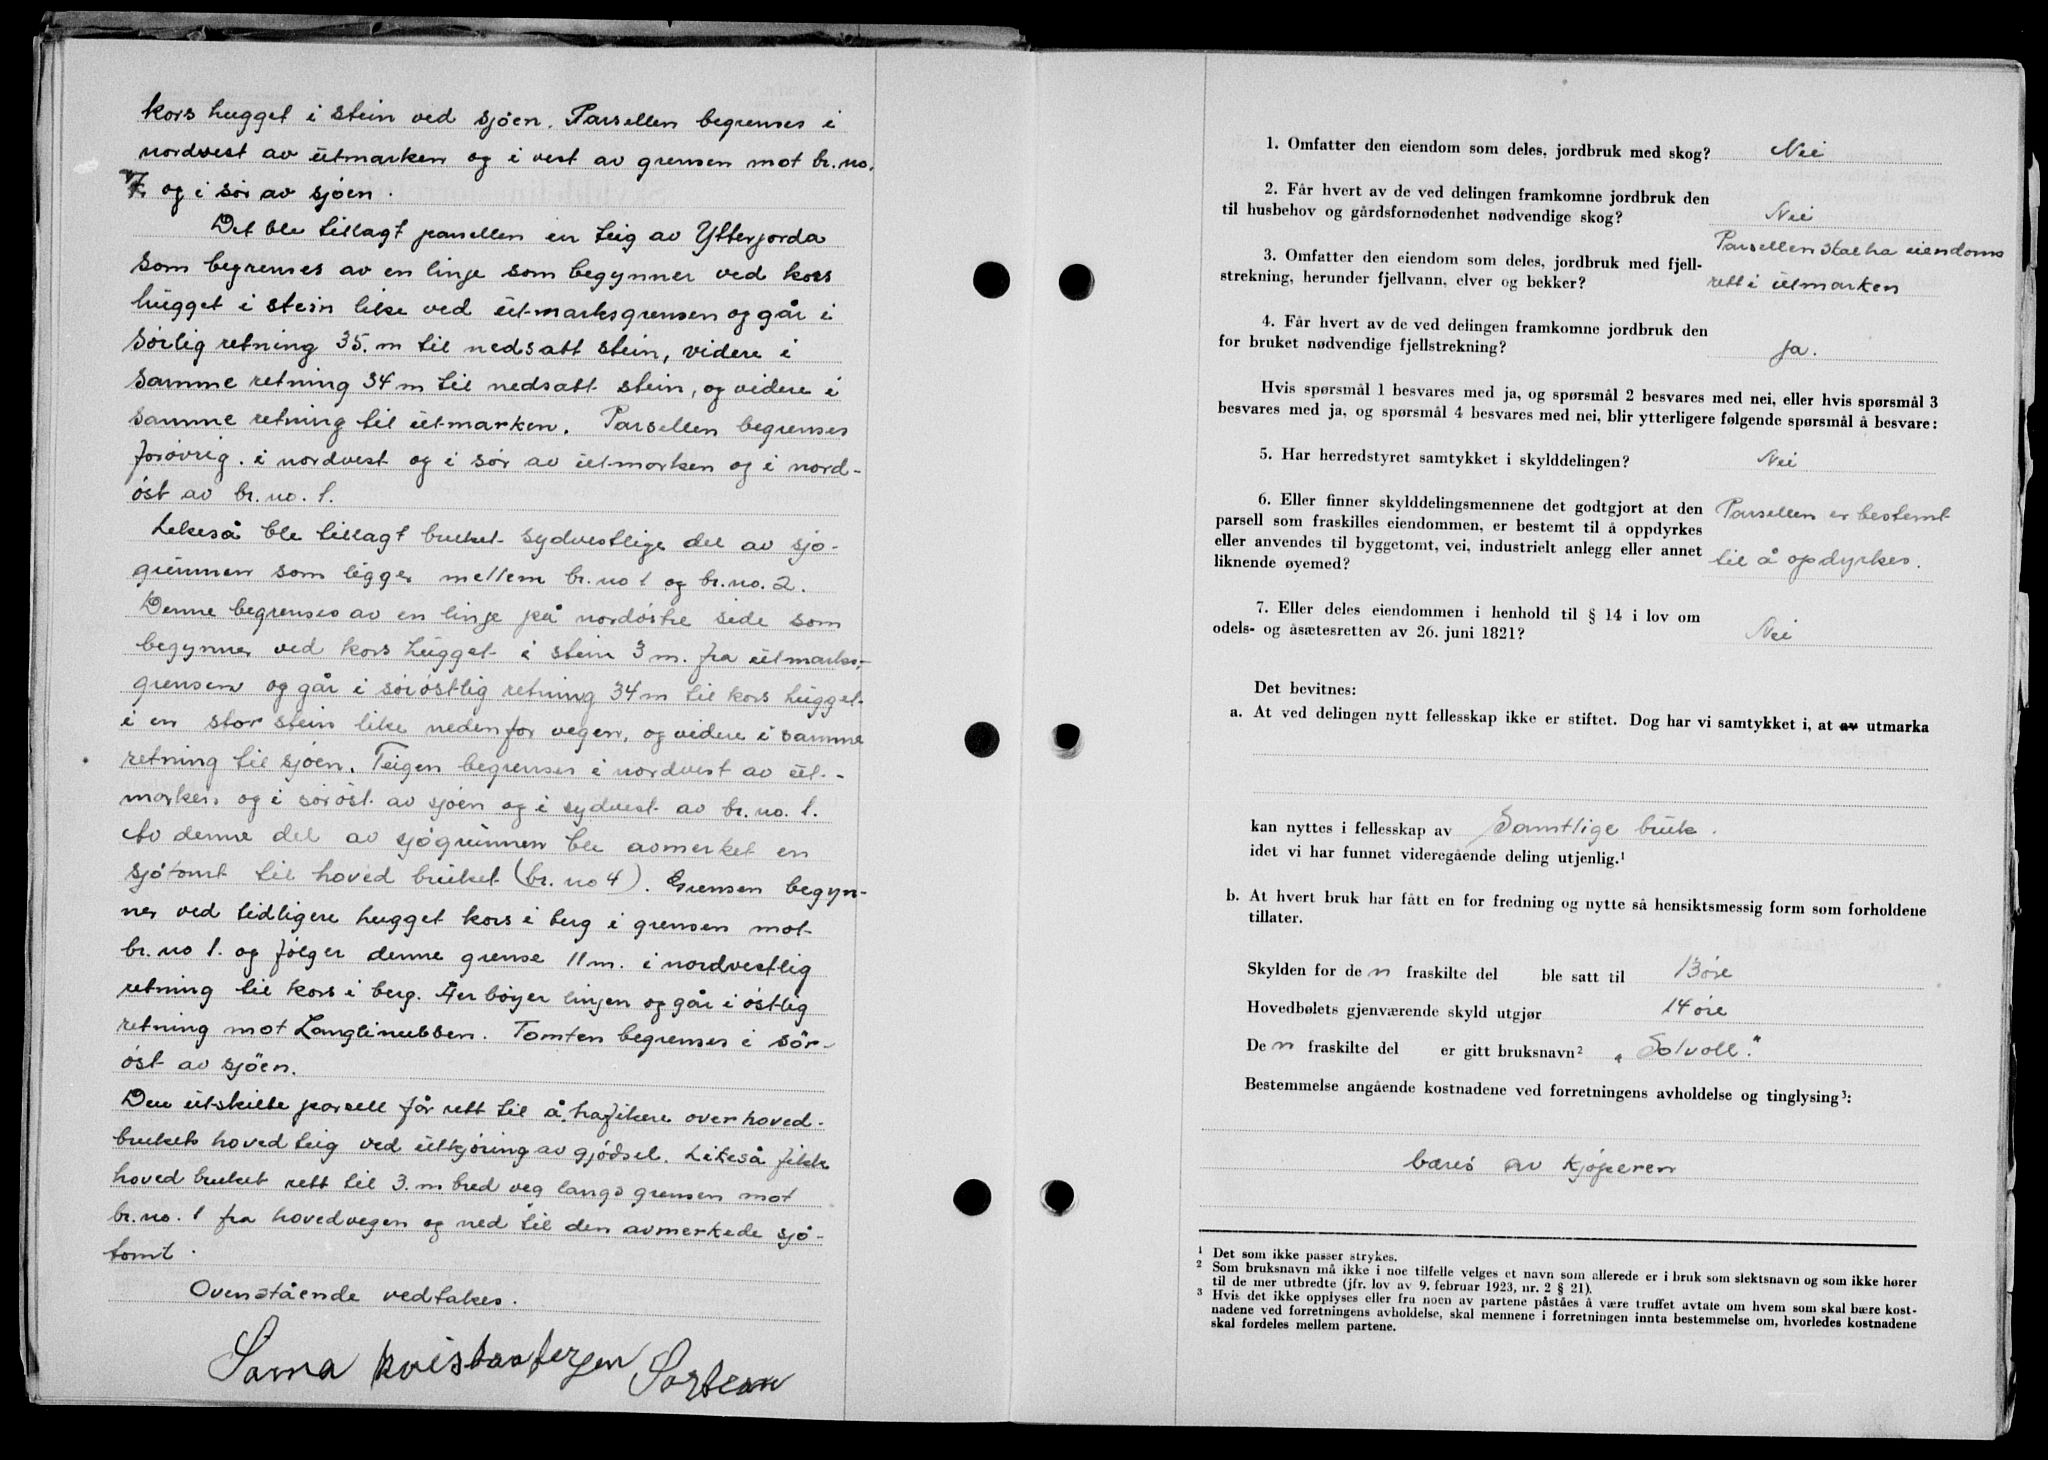 kors hugget i stein ved sjöen. Parsellen begrenses i
nordvest av utmarken og i vest av grensen mot br. no.
7. og i sör av sjöen.
Det ble tillagt parsellen en teig av Ytterjorda
som begrenses av en linje som begynner ved kors
hugget i stein like ved utmarksgrensen og går i
sörlig retning 35. m til nedsatt stein, videre i
samme retning 34 m til nedsatt stein, og videre i
samme retning til utmarken. Parsellen begrenses
forövrig. i nordvest og i sör av utmarken og i nord-
öst av br. no. 1.
Likeså ble tillagt bruket sydvestlige del av sjö-
grunnen som ligger mellem br. no 1 og br. no. 2.
Denne begrenses av en linje på nordöstre side som
begynner ved kors hugget i stein 3 m. fra utmarks-
grensen og går i söröstlig retning 34 m til kors hugget
i en stor stein like nedenfor vegen, og videre i samme
retning til sjöen. Teigen begrenses i nordvest av ut-
marken og i söröst av sjöen og i sydvest av br. no. 1.
Av denne del av sjögrunnen ble avmerket en
sjötomt til hovedbruket (br. no 4). Grensen begyn-
ner ved tidligere hugget kors i berg i grensen mot
br. no 1. og fölger denne grense 11 m. i nordvestlig
retning til kors i berg. Her böyer linjen og går i östlig
retning mot Langlinubben. Tomten begrenses i sör-
öst av sjöen.
Den utskilte parsell får rett til å trafikere over hoved-
brukets hovedteig ved utkjöring av gjödsel. Likeså fikk
hovedbruket rett til 3. m. bred veg langs grensen mot
br. no. 1 fra hovedvegen og ned til den avmerkede sjö-
tomt.
Ovenstående vedtakes.
Sorna Kristoffersen Sortean
1. Omfatter den eiendom som deles, jordbruk med skog? Nei
2. Får hvert av de ved delingen framkomne jordbruk den
til husbehov og gårdsfornødenhet nødvendige skog? Nei
3. Omfatter den eiendom som deles, jordbruk med fjell- Parsellen skal ha eiendoms
strekning, herunder fjellvann, elver og bekker? rett i utmarken
4. Får hvert av de ved delingen framkomne jordbruk den
for bruket nødvendige fjellstrekning? Ja.
Hvis spørsmål 1 besvares med ja, og spørsmål 2 besvares med nei, eller hvis spørsmål 3
besvares med ja, og spørsmål 4 besvares med nei, blir ytterligere følgende spørsmål å besvare:
5. Har herredstyret samtykket i skylddelingen? Nei
6. Eller finner skylddelingsmennene det godtgjort at den
parsell som fraskilles eiendommen, er bestemt til å oppdyrkes Parsellen er bestemt
eller anvendes til byggetomt, vei, industrielt anlegg eller annet
liknende øyemed? til å opdyrkes.
7. Eller deles eiendommen i henhold til § 14 i lov om
odels- og åsætesretten av 26. juni 1821? Nei
Det bevitnes:
a. At ved delingen nytt fellesskap ikke er stiftet. Dog har vi samtykket i, at av utmarka
kan nyttes i fellesskap av Samtlige bruk.
idet vi har funnet videregående deling utjenlig.1
b. At hvert bruk har fått en for fredning og nytte så hensiktsmessig form som forholdene
tillater.
Skylden for de n fraskilte del ble satt til 13 øre
Hovedbølets gjenværende skyld utgjør 14 øre
De n fraskilte del er gitt bruksnavn2 „Solvoll."
Bestemmelse angående kostnadene ved forretningens avholdelse og tinglysing3:
bæres av kjøperen
1 Det som ikke passer strykes.
2 Som bruksnavn må ikke i noe tilfelle velges et navn som allerede er i bruk som slektsnavn og som ikke hører
til de mer utbredte (jfr. lov av 9. februar 1923, nr. 2 § 21).
3 Hvis det ikke opplyses eller fra noen av partene påståes å være truffet avtale om hvem som skal bære kost-
nadene ved forretningens avholdelse, skal mennene i forretningen innta bestemmelse om, hvorledes kostnadene
skal fordeles mellem partene.